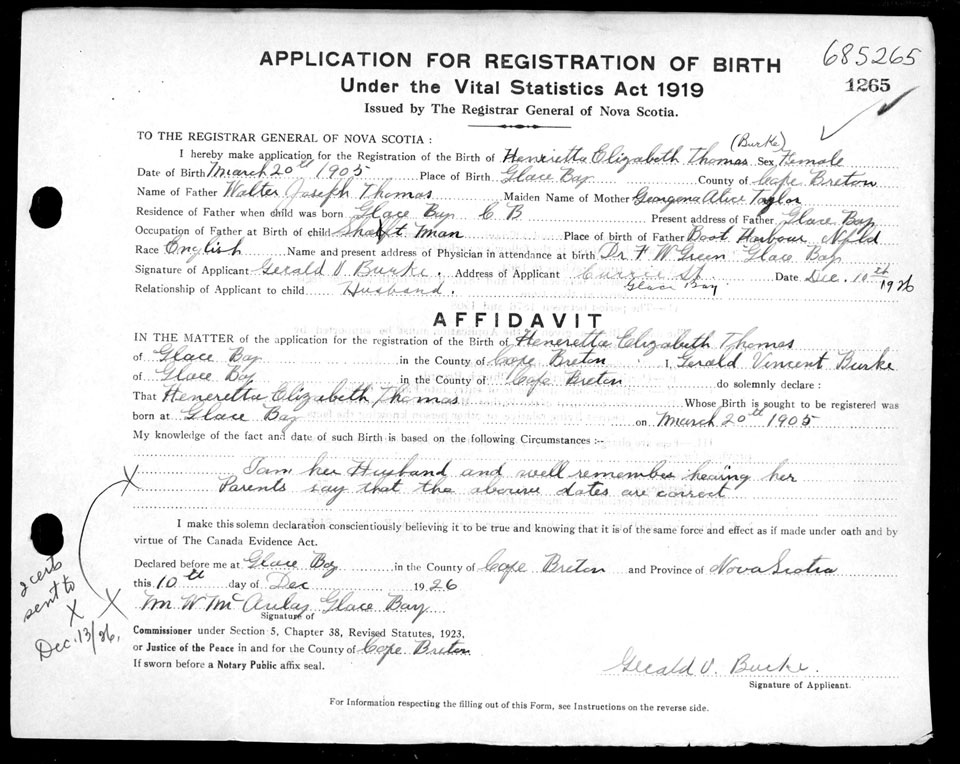 685265
APPLICATION FOR REGISTRATION OF BIRTH
1265
Under the Vital Statistics Act 1919
Issued by The Registrar General of Nova Scotia.
TO THE REGISTRAR GENERAL OF NOVA SCOTIA :
(Burke)
I hereby make application for the Registration of the Birth of Henerietta Elizabeth Thomas Sex Female
Date of Birth March 20th 1905 Place of Birth Glace Bay County of Cape Breton
Name of Father Walter Joseph Thomas Maiden Name of Mother Georgena Alice Taylor
Residence of Father when child was born Glace Bay C B Present address of Father Glace Bay
Occupation of Father at Birth of child Shaft Man Place of birth of Father Boat Harbour Nfld
Race English Name and present address of Physician in attendance at birth Dr F W Green Glace Bay
Signature of Applicant Gerald V Burke. Address of Applicant Currie St Date Dec. 10th
Relationship of Applicant to child Husband. Glace Bay 1926
AFFIDAVIT
IN THE MATTER of the application for the registration of the Birth of Heneretta Elizabeth Thomas
of Glace Bay in the County of Cape Breton I, Gerald Vincent Burke
of Glace Bay in the County of Cape Breton do solemnly declare :
That Heneretta Elizabeth Thomas Whose Birth is sought to be registered was
born at Glace Bay on March 20th 1905
My knowledge of the fact and date of such Birth is based on the following Circumstances :--
I am her Husband and well remember hearing her
Parents say that the above dates are correct
I make this solemn declaration conscientiously believing it to be true and knowing that it is of the same force and effect as if made under oath and by
virtue of The Canada Evidence Act.
Declared before me at Glace Bay in the County of Cape Breton and Province of Nova Scotia
this 10th day of Dec 1926
M W McAulay Glace Bay
Signature of
Commissioner under Section 5, Chapter 38, Revised Statutes, 1923,
or Justice of the Peace in and for the County of Cape Breton
If sworn before a Notary Public affix seal.
Gerald V. Burke.
Signature of Applicant.
For Information respecting the filling out of this Form, see Instructions on the reverse side.
2 certs
sent to
X X
Dec. 13/26.